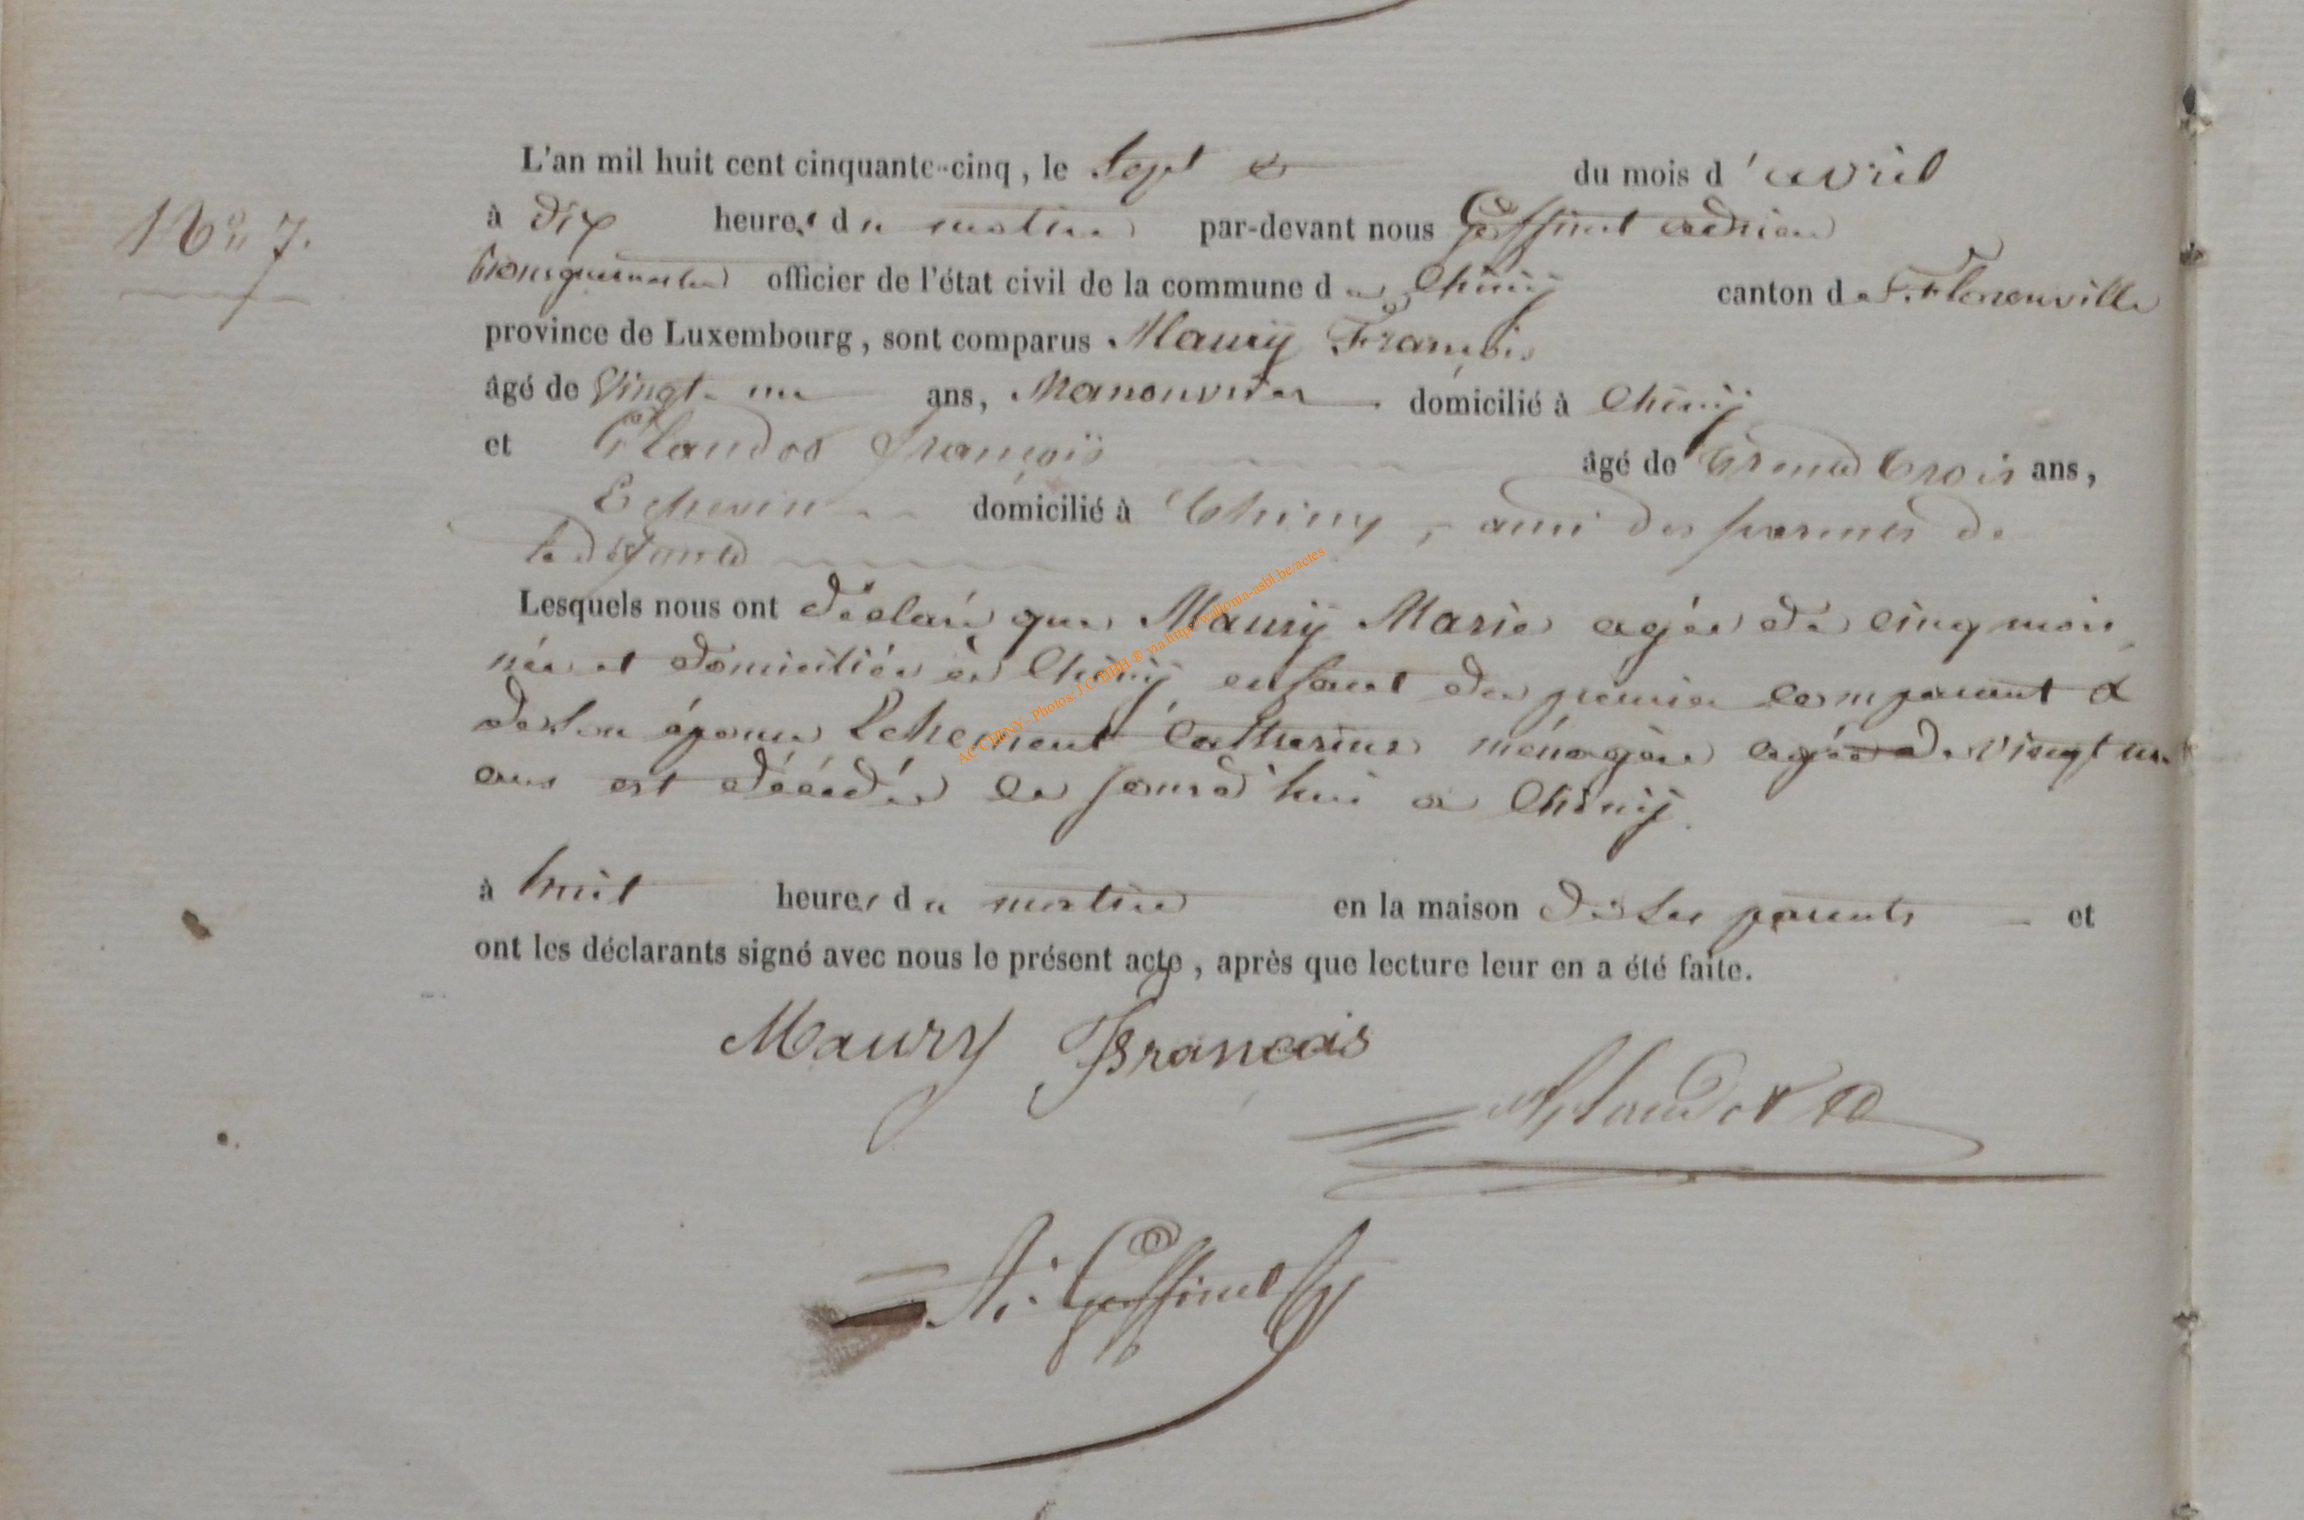 L'an mil huit cent cinquante-cinq, le Sept du mois d'avril
N° 7.
à dix heures du matin par-devant nous Goffinet adrien
bourguemestre officier de l'état civil de la commune de Chinÿ canton de Florenville
province de Luxembourg, sont comparus Maurÿ François
âgé de vingt un ans, Manouvrier domicilié à Chinÿ
et Claudot françois âgé de trente trois ans,
Echevin domicilié à Chiny, ami des parents de
la défunte
Lesquels nous ont déclaré que Maurÿ Marie agée de cinq mois
née et domiciliée à Chinÿ enfant du premier comparant &
de son épouse catherine ménagère agée de vingt un
ans est décédée ce jourd'hui à Chinÿ
à huit heures du matin en la maison de ses parents et
ont les déclarants signé avec nous le présent acte, après que lecture leur en a été faite.
Maury François
A. Goffinet
AC CHINY - Photos J.C HBH ® via http://wallonia-asbl.be/actes